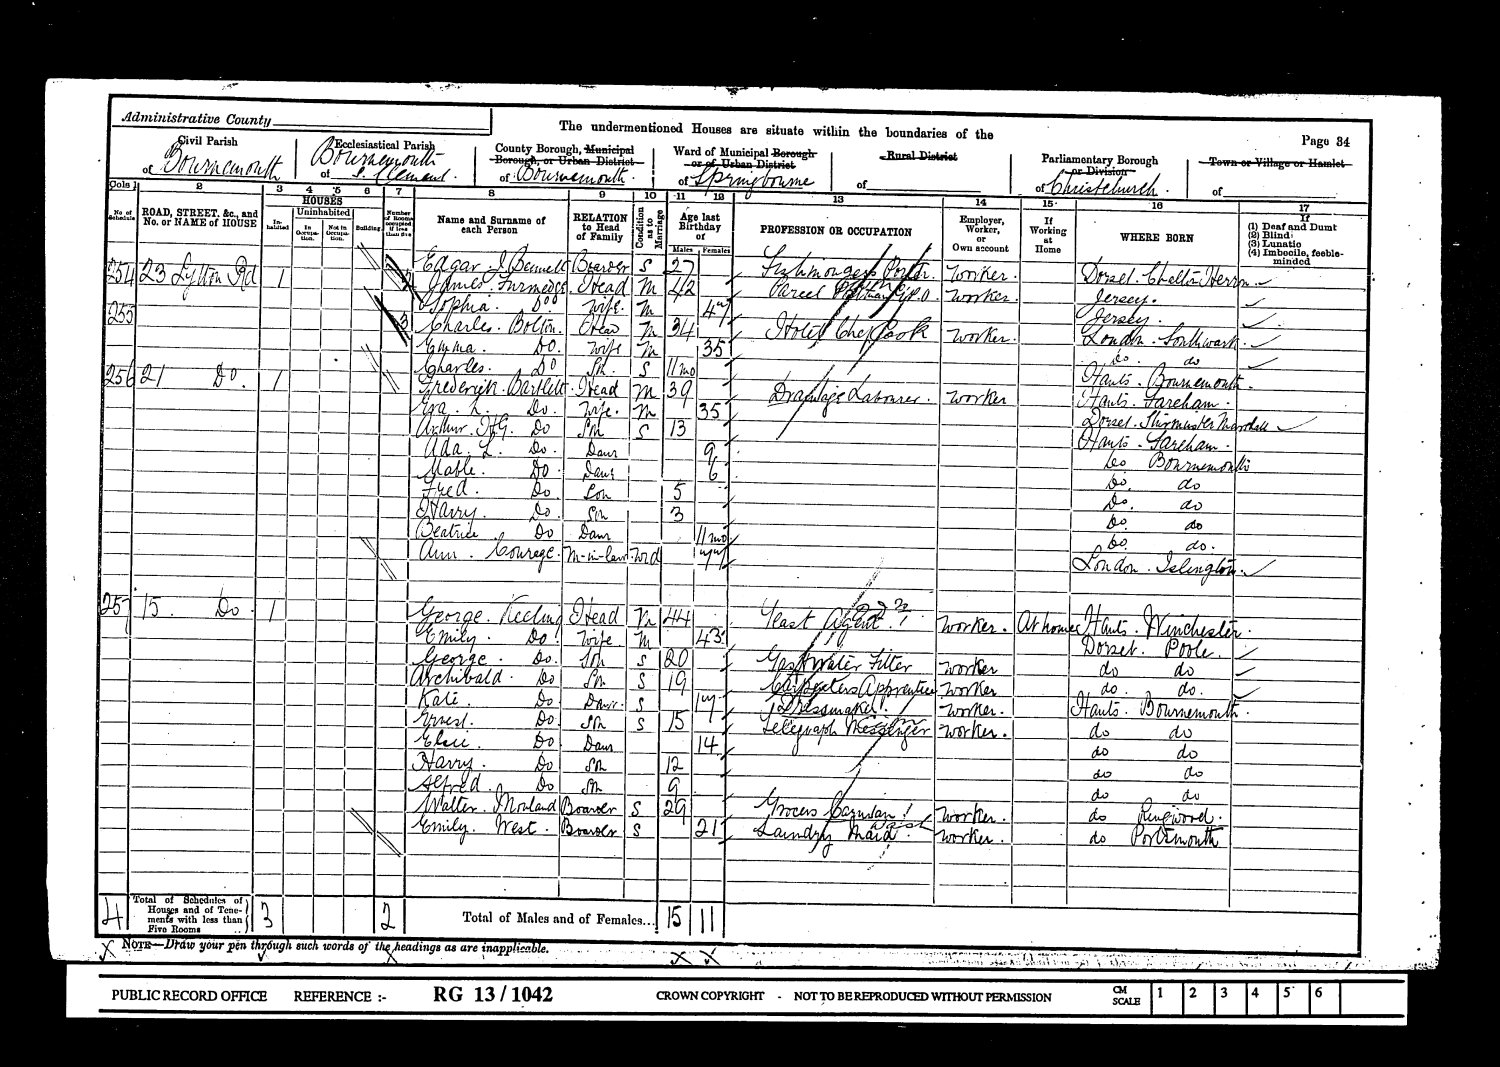 Administrative County
The undermentioned Houses are situate within the boundaries of the
Page 34
Civil Parish of Bournemouth
Ecclesiastical Parish of Bournemouth S. Clement.
County Borough, Municipal Borough, or Urban District of Bournemouth.
Ward of Municipal Borough or of Urban District of Springbourne
Rural District of
Parliamentary Borough or Division of Christchurch.
Town or Village or Hamlet of
Cols 1 2 3 4 5 6 7 8 9 10 11 12 13 14 15 16 17
No. of Schedule
ROAD, STREET, &c., and No. or NAME of HOUSE
HOUSES
Inhabited
Uninhabited
In Occupation.
Not in Occupation.
Building
Number of Rooms occupied if less than five
Name and Surname of each Person
RELATION to Head of Family
Condition as to Marriage
Age last Birthday of
Males Females
PROFESSION OR OCCUPATION
Employer, Worker, or Own account
If Working at Home
WHERE BORN
If (1) Deaf and Dumb (2) Blind (3) Lunatic (4) Imbecile, feeble-minded
Edgar J Bennett Boarder S 27 Fishmongers Porter. Worker. Dorset. Chalbury
254 23 Lytton Rd 1 James. Head M 42 Parcel Postman G.P.O. Worker. Jersey.
Sophia. Do Wife. M 47 Jersey.
255 3 Charles. Bolton. Head M 34 Hotel Chef Cook Worker London. Southwark.
Emma. Do. Wife M 35 do do
Charles. Do Son. S 11 mo Hants. Bournemouth.
256 21 Do. 1 Frederick. Bartlett Head M 39 Drainage Labourer. Worker Hants. Fareham.
Eva. L. Do. Wife. M 35 Dorset. Sturminster Marshall
Arthur. H G. Do Son S 13 Hants. Fareham.
Ada. L. Do. Daur 9 Do Bournemouth
Mable. Do Daur 6 Do. do
Fred. Do Son 5 Do. do
Harry. Do. Son 3 Do. do
Beatrice Do Daur 11 mo Do. do.
Ann. Courage. M-in-law Wid 77 London. Islington.
257 15. Do. 1 George. Keeling Head M 44 Yeast Agent. Worker. At home Hants. Winchester.
Emily. Do. Wife M 43 Dorset. Poole.
George. Do. Son S 20 Gas & Water Fitter Worker do do
Archibald. Do Son S 19 Carpenters Apprentice Worker do. do.
Kate. Do Daur. S 17 Dressmaker. Worker. Hants. Bournemouth.
Ernest. Do. Son S 15 Telegraph Messenger Worker. do do
Elsie. Do Daur 14 do do
Harry. Do Son 12 do do
Alfred. Do Son 9 do do
Walter. Boarder S 29 Grocers Carman Worker. do Ringwood.
Emily. West. Boarder S 21 Laundry Maid. Wash Worker. do Portsmouth
4 Total of Schedules of Houses and of Tenements with less than Five Rooms 3 2 Total of Males and of Females... 15 11
NOTE—Draw your pen through such words of the headings as are inapplicable.
PUBLIC RECORD OFFICE REFERENCE :- RG 13 / 1042 CROWN COPYRIGHT - NOT TO BE REPRODUCED WITHOUT PERMISSION CM SCALE 1 2 3 4 5 6